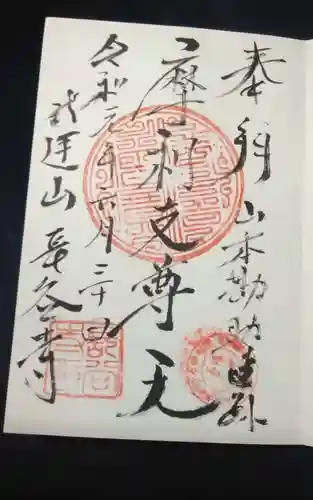 奉拝 山本勘助
摩利支尊天
令和元年六月三十日
武運山 長谷寺